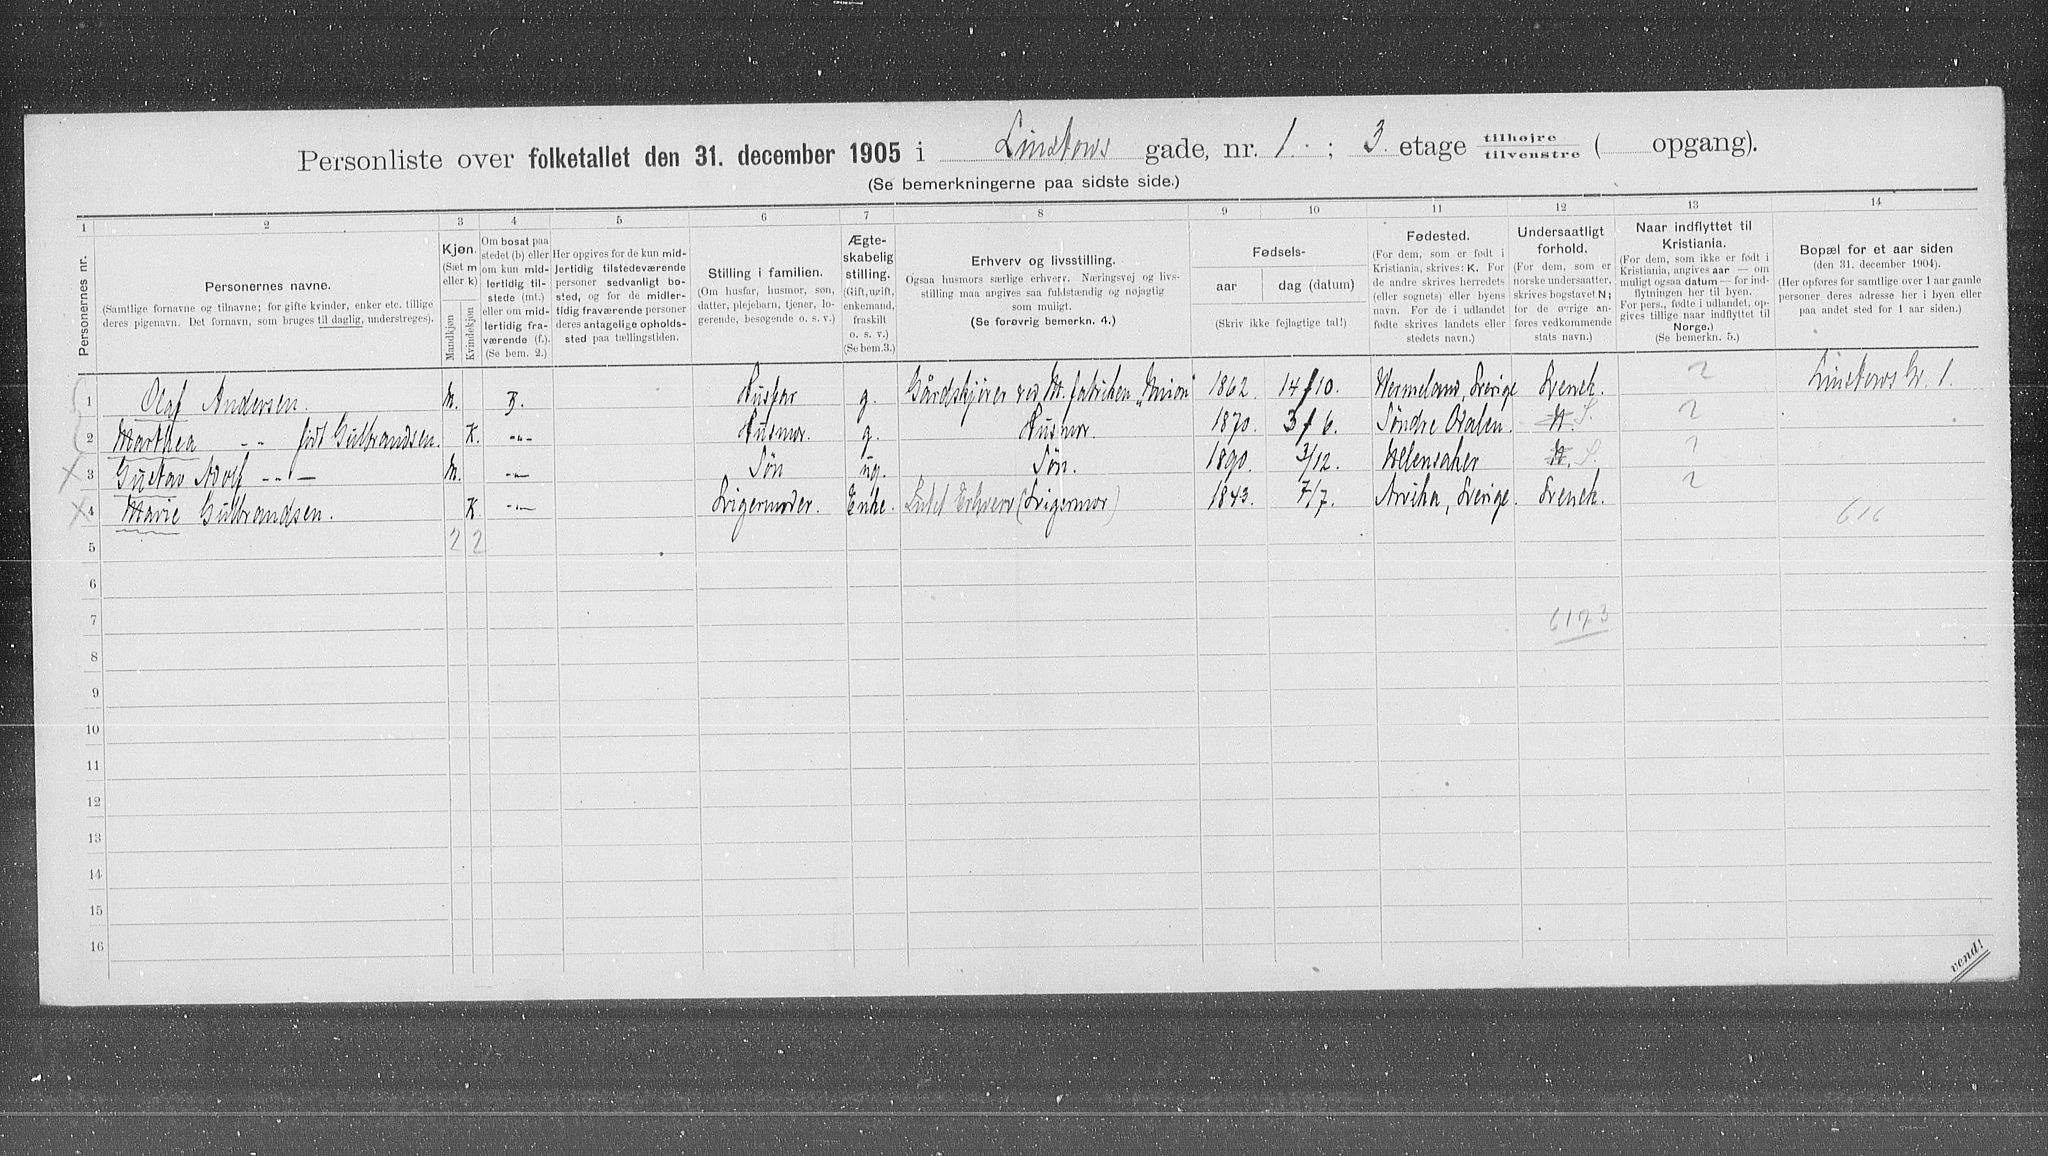 Personliste over folketallet den 31. december 1905 i Linstows gade, nr. 1. ; 3. etage tilhøjre / tilvenstre ( opgang).
(Se bemerkningerne paa sidste side.)
1 2 3 4 5 6 7 8 9 10 11 12 13 14
Personernes nr.
Personernes navne.
(Samtlige fornavne og tilnavne; for gifte kvinder, enker etc. tillige
deres pigenavn. Det fornavn, som bruges til daglig, understreges).
Kjøn.
(Sæt m
eller k)
Mandkjøn
Kvindekjøn
Om bosat paa
stedet (b) eller
om kun mid-
lertidig til-
stede (mt.)
eller om mid-
lertidig fra-
værende (f.).
(Se bem. 2.)
Her opgives for de kun mid-
lertidig tilstedeværende
personer sedvanligt bo-
sted, og for de midler-
tidig fraværende personer
deres antagelige opholds-
sted paa tællingstiden.
Stilling i familien.
(Om husfar, husmor, søn,
datter, plejebarn, tjener, lo-
gerende, besøgende o. s. v.)
Ægte-
skabelig
stilling.
(Gift, ugift,
enkemand,
fraskilt
o. s. v.)
(Se bem. 3.)
Erhverv og livsstilling.
Ogsaa husmors særlige erhverv. Næringsvej og livs-
stilling maa angives saa fuldstændig og nøjagtig
som muligt.
(Se forøvrig bemerkn. 4.)
Fødsels-
aar
dag (datum)
(Skriv ikke fejlagtige tal!)
Fødested.
(For dem, som er født i
Kristiania, skrives: K. For
de andre skrives herredets
(eller sognets) eller byens
navn. For de i udlandet
fødte skrives landets eller
stedets navn.)
Undersaatligt
forhold.
(For dem, som er
norske undersaatter,
skrives bogstavet N;
for de øvrige an-
føres vedkommende
stats navn.)
Naar indflyttet til
Kristiania.
(For dem, som ikke er født i
Kristiania, angives aar — om
muligt ogsaa datum — for ind-
flytningen her til byen.
For pers., fødte i udlandet, op-
gives tillige naar indflyttet til
Norge.)
(Se bemerkn. 5.)
Bopæl for et aar siden
(den 31. december 1904).
(Her opføres for samtlige over 1 aar gamle
personer deres adresse her i byen eller
paa andet sted for 1 aar siden.)
1 Olaf Andersen. M. B. Husfar g. Gårdskjører ved M. fabriken „Union" 1862 14/10. Wermeland, Sverige Svensk. ? Linstows G. 1.
2 Marthea -"- født Gulbrandsen. K. -"- Husmor. g. Husmor. 1870. 3/6. Søndre Odalen. N. S. ?
3 Gustav Adolf -"- M. -"- Søn ug. Søn. 1890. 3/12. N. S. ?
4 Marie Gulbrandsen. K. -"- Svigermoder. Enke. Intet Erhverv (Svigermor) 1843. 7/7. Arvika, Sverige. Svensk. ?
616
5 2 2
6
7 6173
8
9
10
11
12
13
14
15
16
vend!